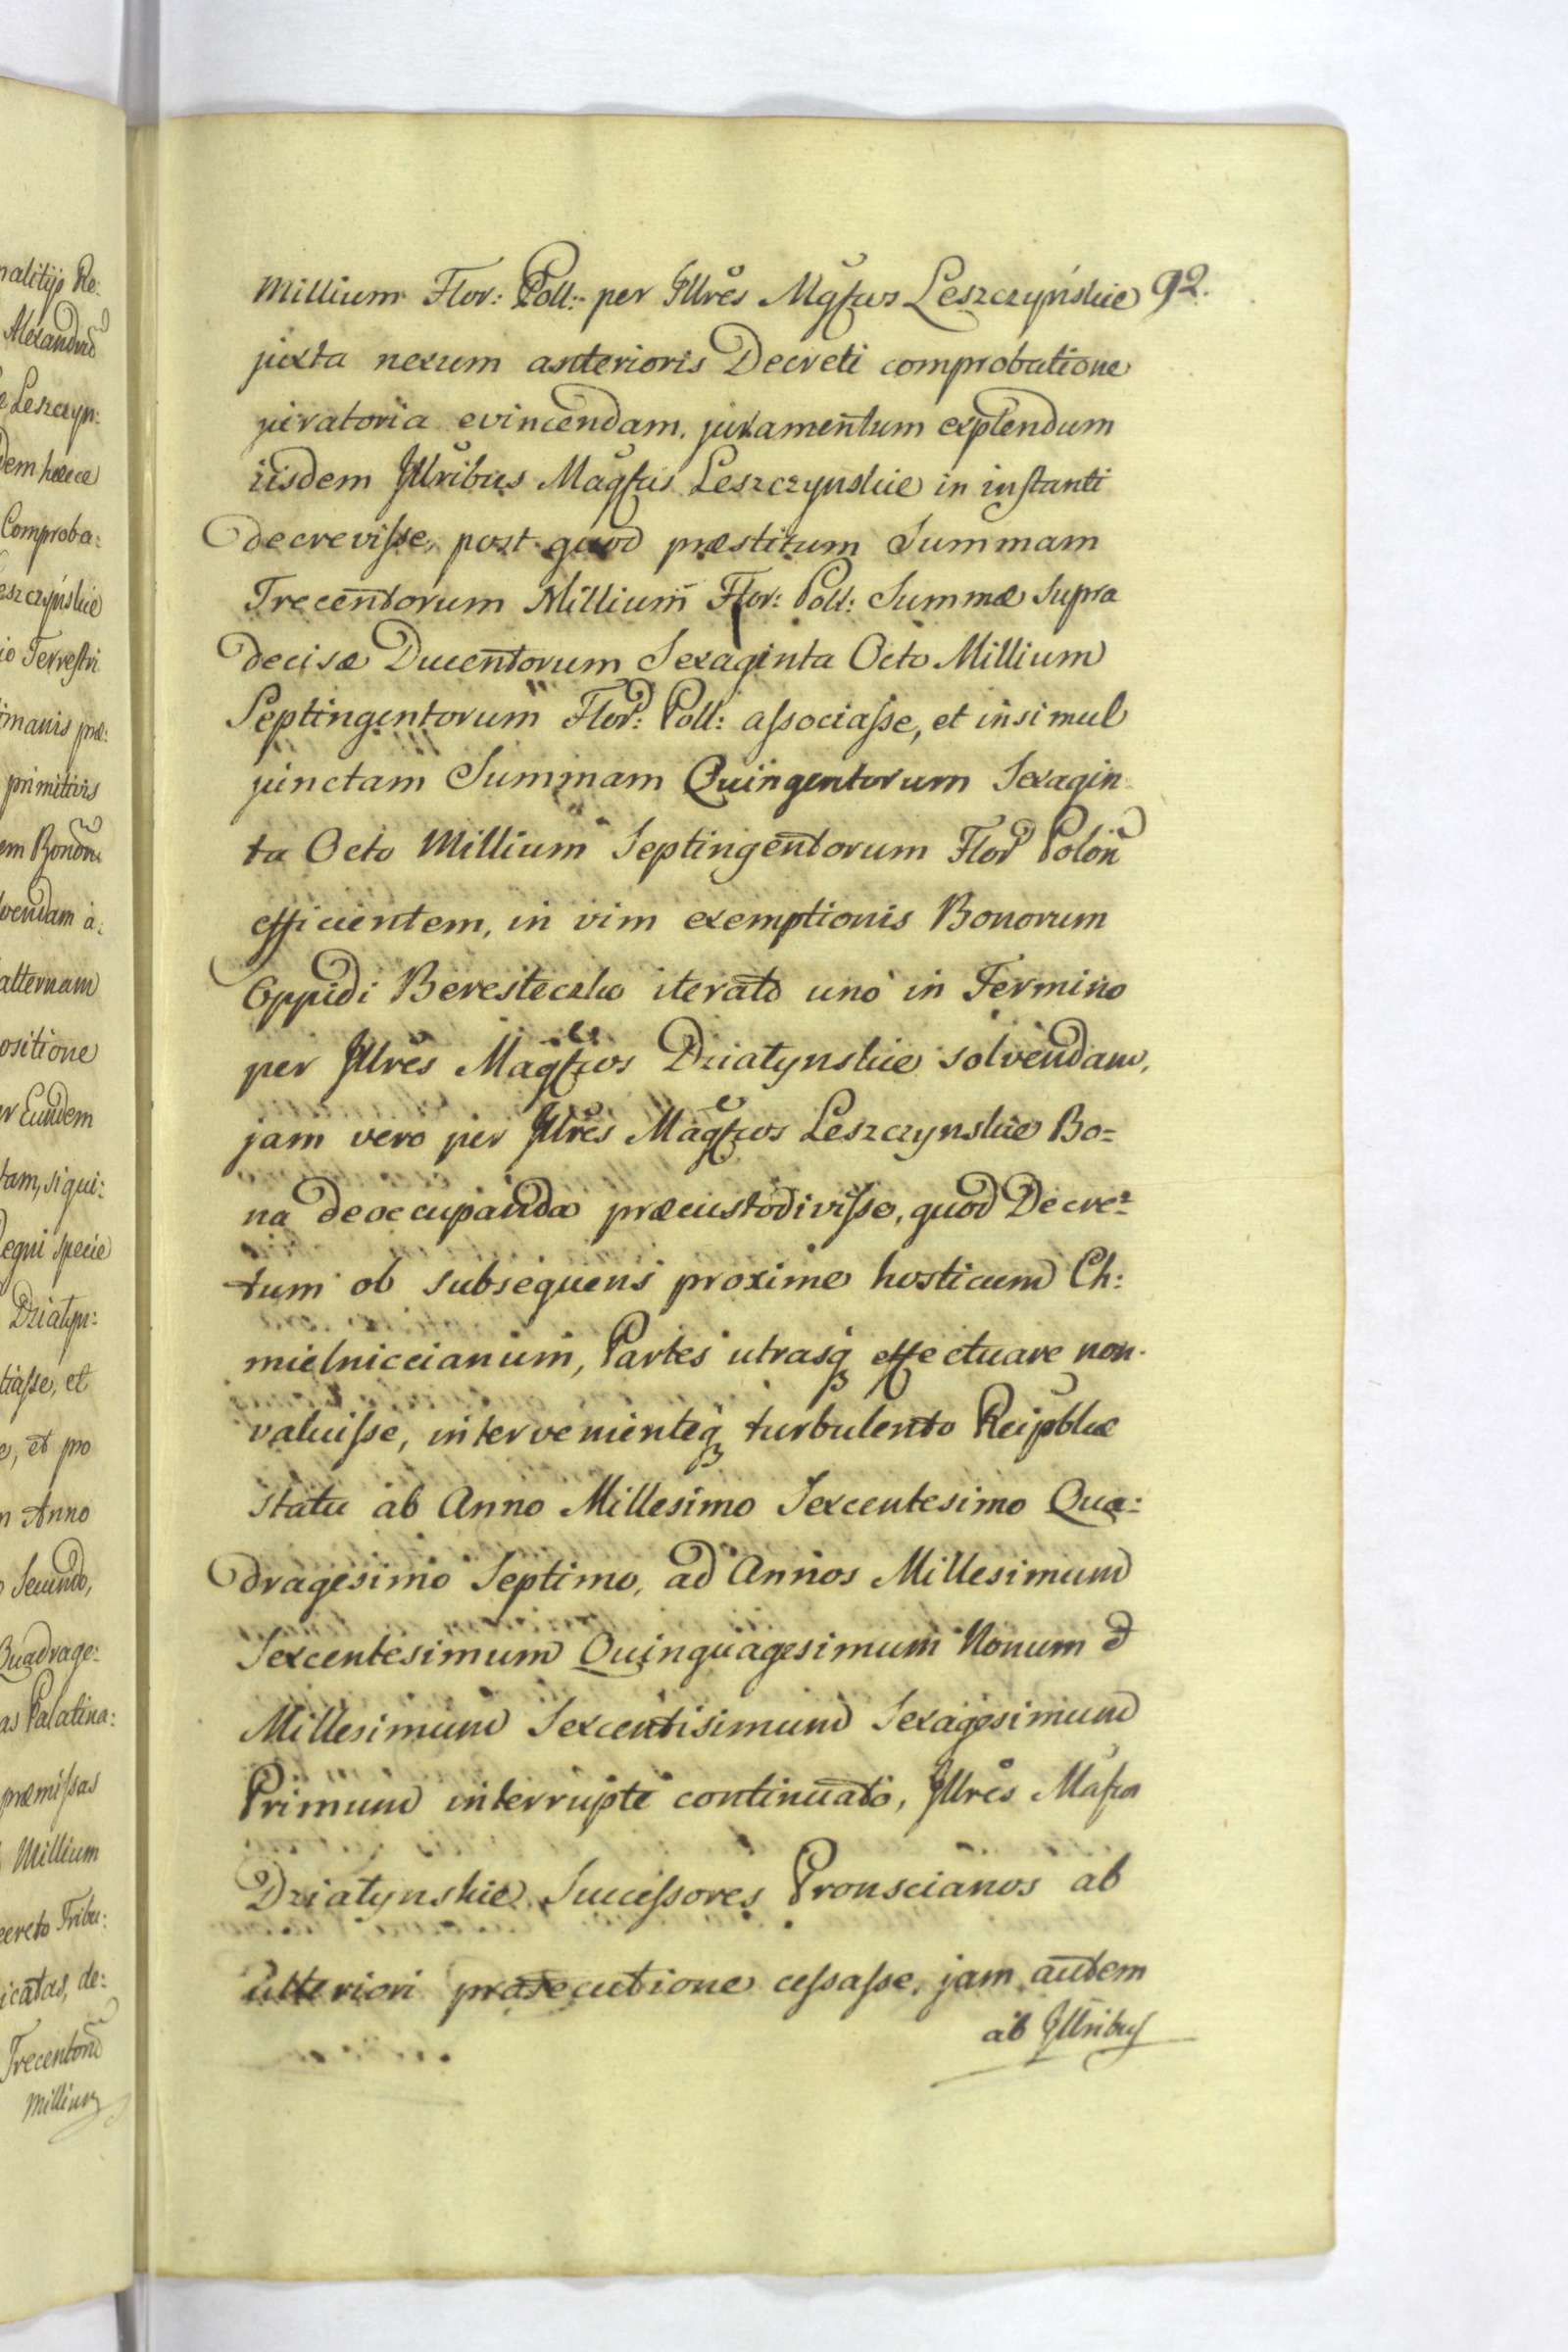 nalitijs Re:
Alexandrū
e Leszczyn:
dem hæece
Comproba:
eszczyńskie
io Terrestri
imanis præ:
primitivis
em Bonōrū
vendam a:
alternam
ositione
er Eundem
tam, si qui:
egni specie
Dziatyn:
tiasse, et
e, et pro
n Anno
o Secundo,
Quadrage:
as Palatina:
præmissas
Millium
ecreto Tribu:
icatas, de:
Trecentorū
Millium
92.
Millium Flor: Poll: per Jllrēs Mgfcos Leszczyńskie
juxta nexum anterioris Decreti comprobatione
juratoria evincendam, juramentum explendum
iisdem Jllribus Magfcis Leszczynskie in instanti
decrevisse, post quod præstitum Summam
Trecentorum Millium Flor: Poll: Summæ supra
decisæ Ducentorum Sexaginta Octo Millium
Septingentorum Flor: Poll: associasse, et insimul
junctam Summam Quingentorum Sexagin
ta Octo Millium Septingentorum Flor Polon
efficientem, in vim exemptionis Bonorum
Oppidi Beresteczko iterato uno in Termino
per Jllrēs Magfcos Dziatynskie solvendam,
jam vero per Jllrēs Magfcos Leszczynskie Bo=
na deoccupanda præcustodivisse, quod Decre=
tum ob subsequens proxime hosticum Ch:
mielniccianum, Partes utrasq effectuare non
valuisse, intervenienteq turbulento Reipblicæ
statu ab Anno Millesimo Sexcentesimo Qua:
dragesimo Septimo, ad Annos Millesimum
Sexcentesimum Quinquagesimum Nonum et
Millesimum Sexcentisimum Sexagesimum
Primum interrupte continuato, Jllrēs Mafcos
Dziatynskie Successores Pronscianos ab
ulteriori prosecutione cessasse, jam autem
ab Jllribus